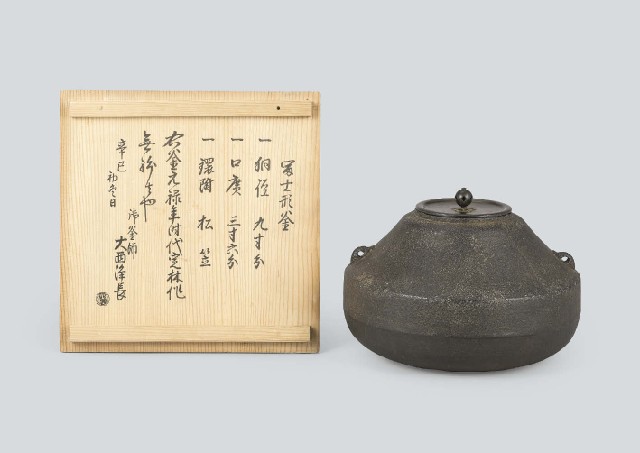 冨士形釜
一 胴径 九寸分
一 口廣 三寸六分
一 鐶附 松笠
右釜元禄年時代定林作
無紛者也
辛巳
初冬日
御釜師
大西浄長